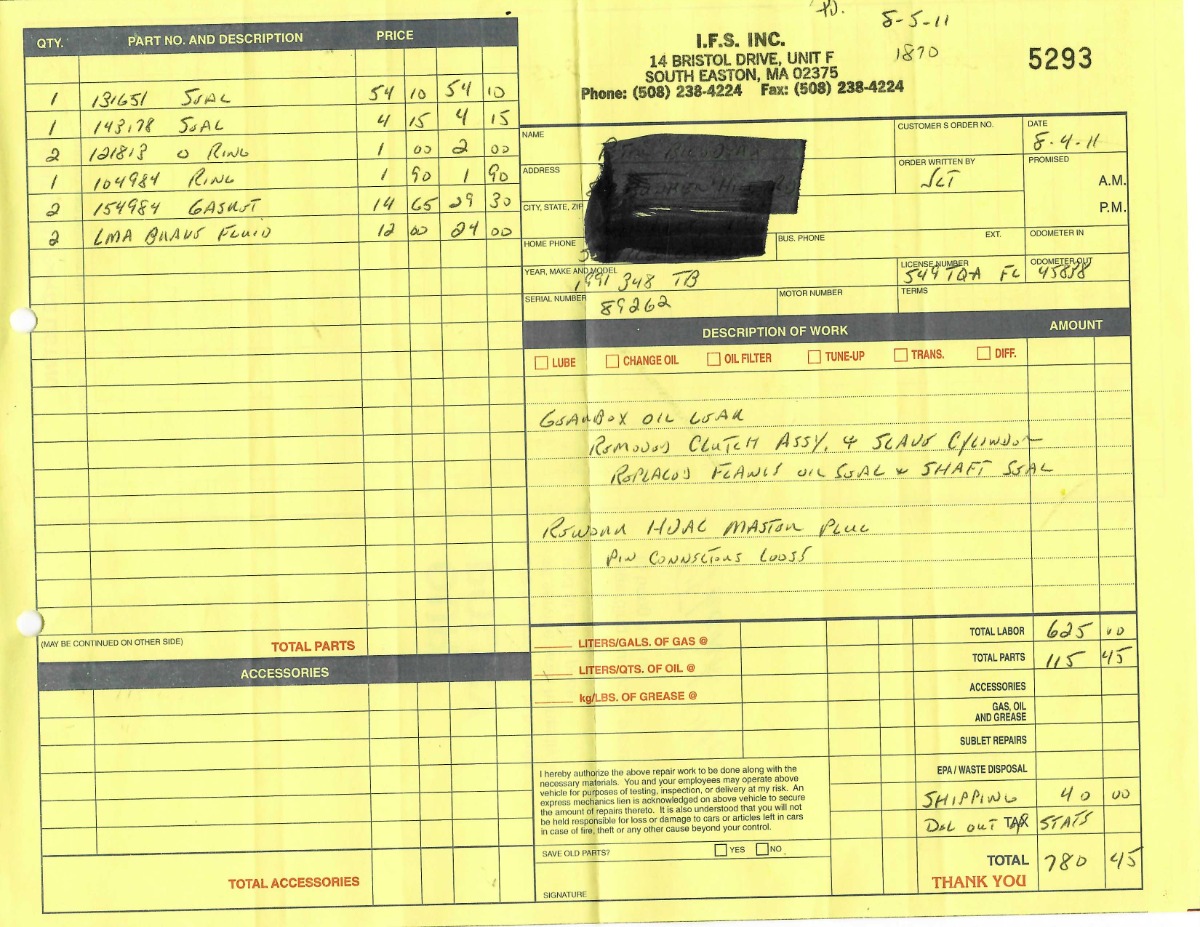 PD. 8-5-11
1870
I.F.S. INC.
14 BRISTOL DRIVE, UNIT F
SOUTH EASTON, MA 02375
Phone: (508) 238-4224 Fax: (508) 238-4224
5293
QTY. PART NO. AND DESCRIPTION PRICE
1 131651 SEAL 54 10 54 10
1 143178 SEAL 4 15 4 15
2 121813 O RING 1 00 2 00
1 104984 RING 1 90 1 90
2 154984 GASKET 14 65 29 30
2 LMA BRAKE FLUID 12 00 24 00
(MAY BE CONTINUED ON OTHER SIDE) TOTAL PARTS
ACCESSORIES
TOTAL ACCESSORIES
NAME
ADDRESS
CITY, STATE, ZIP
HOME PHONE
BUS. PHONE EXT.
CUSTOMER'S ORDER NO.
DATE
8-4-11
ORDER WRITTEN BY
JLT
PROMISED
A.M.
P.M.
ODOMETER IN
YEAR, MAKE AND MODEL
1991 348 TB
LICENSE NUMBER
549 TQA FL
ODOMETER OUT
45858
SERIAL NUMBER
89262
MOTOR NUMBER
TERMS
DESCRIPTION OF WORK AMOUNT
LUBE CHANGE OIL OIL FILTER TUNE-UP TRANS. DIFF.
GEARBOX OIL LEAK
REMOVED CLUTCH ASSY. & SLAVE CYLINDER
REPLACED FLANGE OIL SEAL & SHAFT SEAL
REWORK HVAC MASTER PLUG
PIN CONNECTORS LOOSE
LITERS/GALS. OF GAS @
LITERS/QTS. OF OIL @
kg/LBS. OF GREASE @
TOTAL LABOR 625 00
TOTAL PARTS 115 45
ACCESSORIES
GAS, OIL
AND GREASE
SUBLET REPAIRS
EPA / WASTE DISPOSAL
SHIPPING 40 00
DEL OUT OF STATE
TAX
TOTAL 780 45
THANK YOU
I hereby authorize the above repair work to be done along with the
necessary materials. You and your employees may operate above
vehicle for purposes of testing, inspection, or delivery at my risk. An
express mechanics lien is acknowledged on above vehicle to secure
the amount of repairs thereto. It is also understood that you will not
be held responsible for loss or damage to cars or articles left in cars
in case of fire, theft or any other cause beyond your control.
SAVE OLD PARTS? YES NO
SIGNATURE